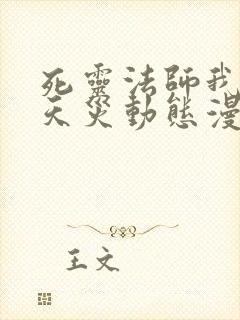 死靈法師我
天災動態漫
王文